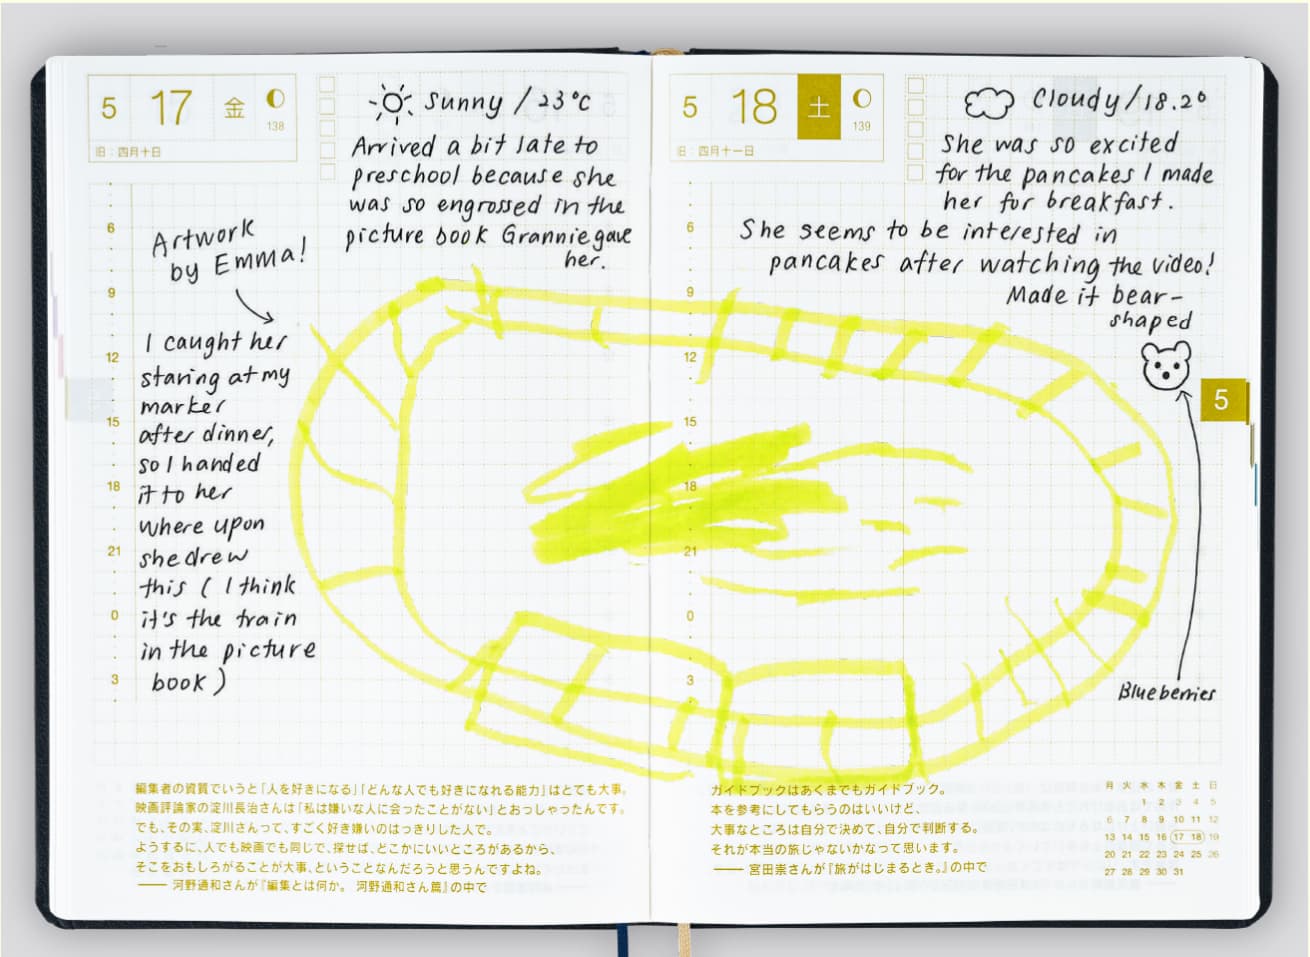 5 17 金
138
旧:四月十日
sunny / 23°C
Arrived a bit late to
preschool because she
was so engrossed in the
picture book Grannie gave
her.
Artwork
by Emma!
I caught her
staring at my
marker
after dinner,
so I handed
it to her
where upon
she drew
this ( I think
it's the train
in the picture
book )
6
9
12
15
18
21
0
3
編集者の資質でいうと「人を好きになる」「どんな人でも好きになれる能力」はとても大事。
映画評論家の淀川長治さんは「私は嫌いな人に会ったことがない」とおっしゃったんです。
でも、その実、淀川さんって、すごく好き嫌いのはっきりした人で。
ようするに、人でも映画でも同じで、探せば、どこかにいいところがあるから、
そこをおもしろがることが大事、ということなんだろうと思うんですよね。
—— 河野通和さんが『編集とは何か。 河野通和さん篇』の中で
5 18 土
139
旧:四月十一日
Cloudy / 18.2°
She was so excited
for the pancakes I made
her for breakfast.
She seems to be interested in
pancakes after watching the video!
Made it bear-
shaped
5
Blueberries
6
9
12
15
18
21
0
3
ガイドブックはあくまでもガイドブック。
本を参考にしてもらうのはいいけど、
大事なところは自分で決めて、自分で判断する。
それが本当の旅じゃないかなって思います。
—— 宮田崇さんが『旅がはじまるとき。』の中で
月 火 水 木 金 土 日
1 2 3 4 5
6 7 8 9 10 11 12
13 14 15 16 17 18 19
20 21 22 23 24 25 26
27 28 29 30 31